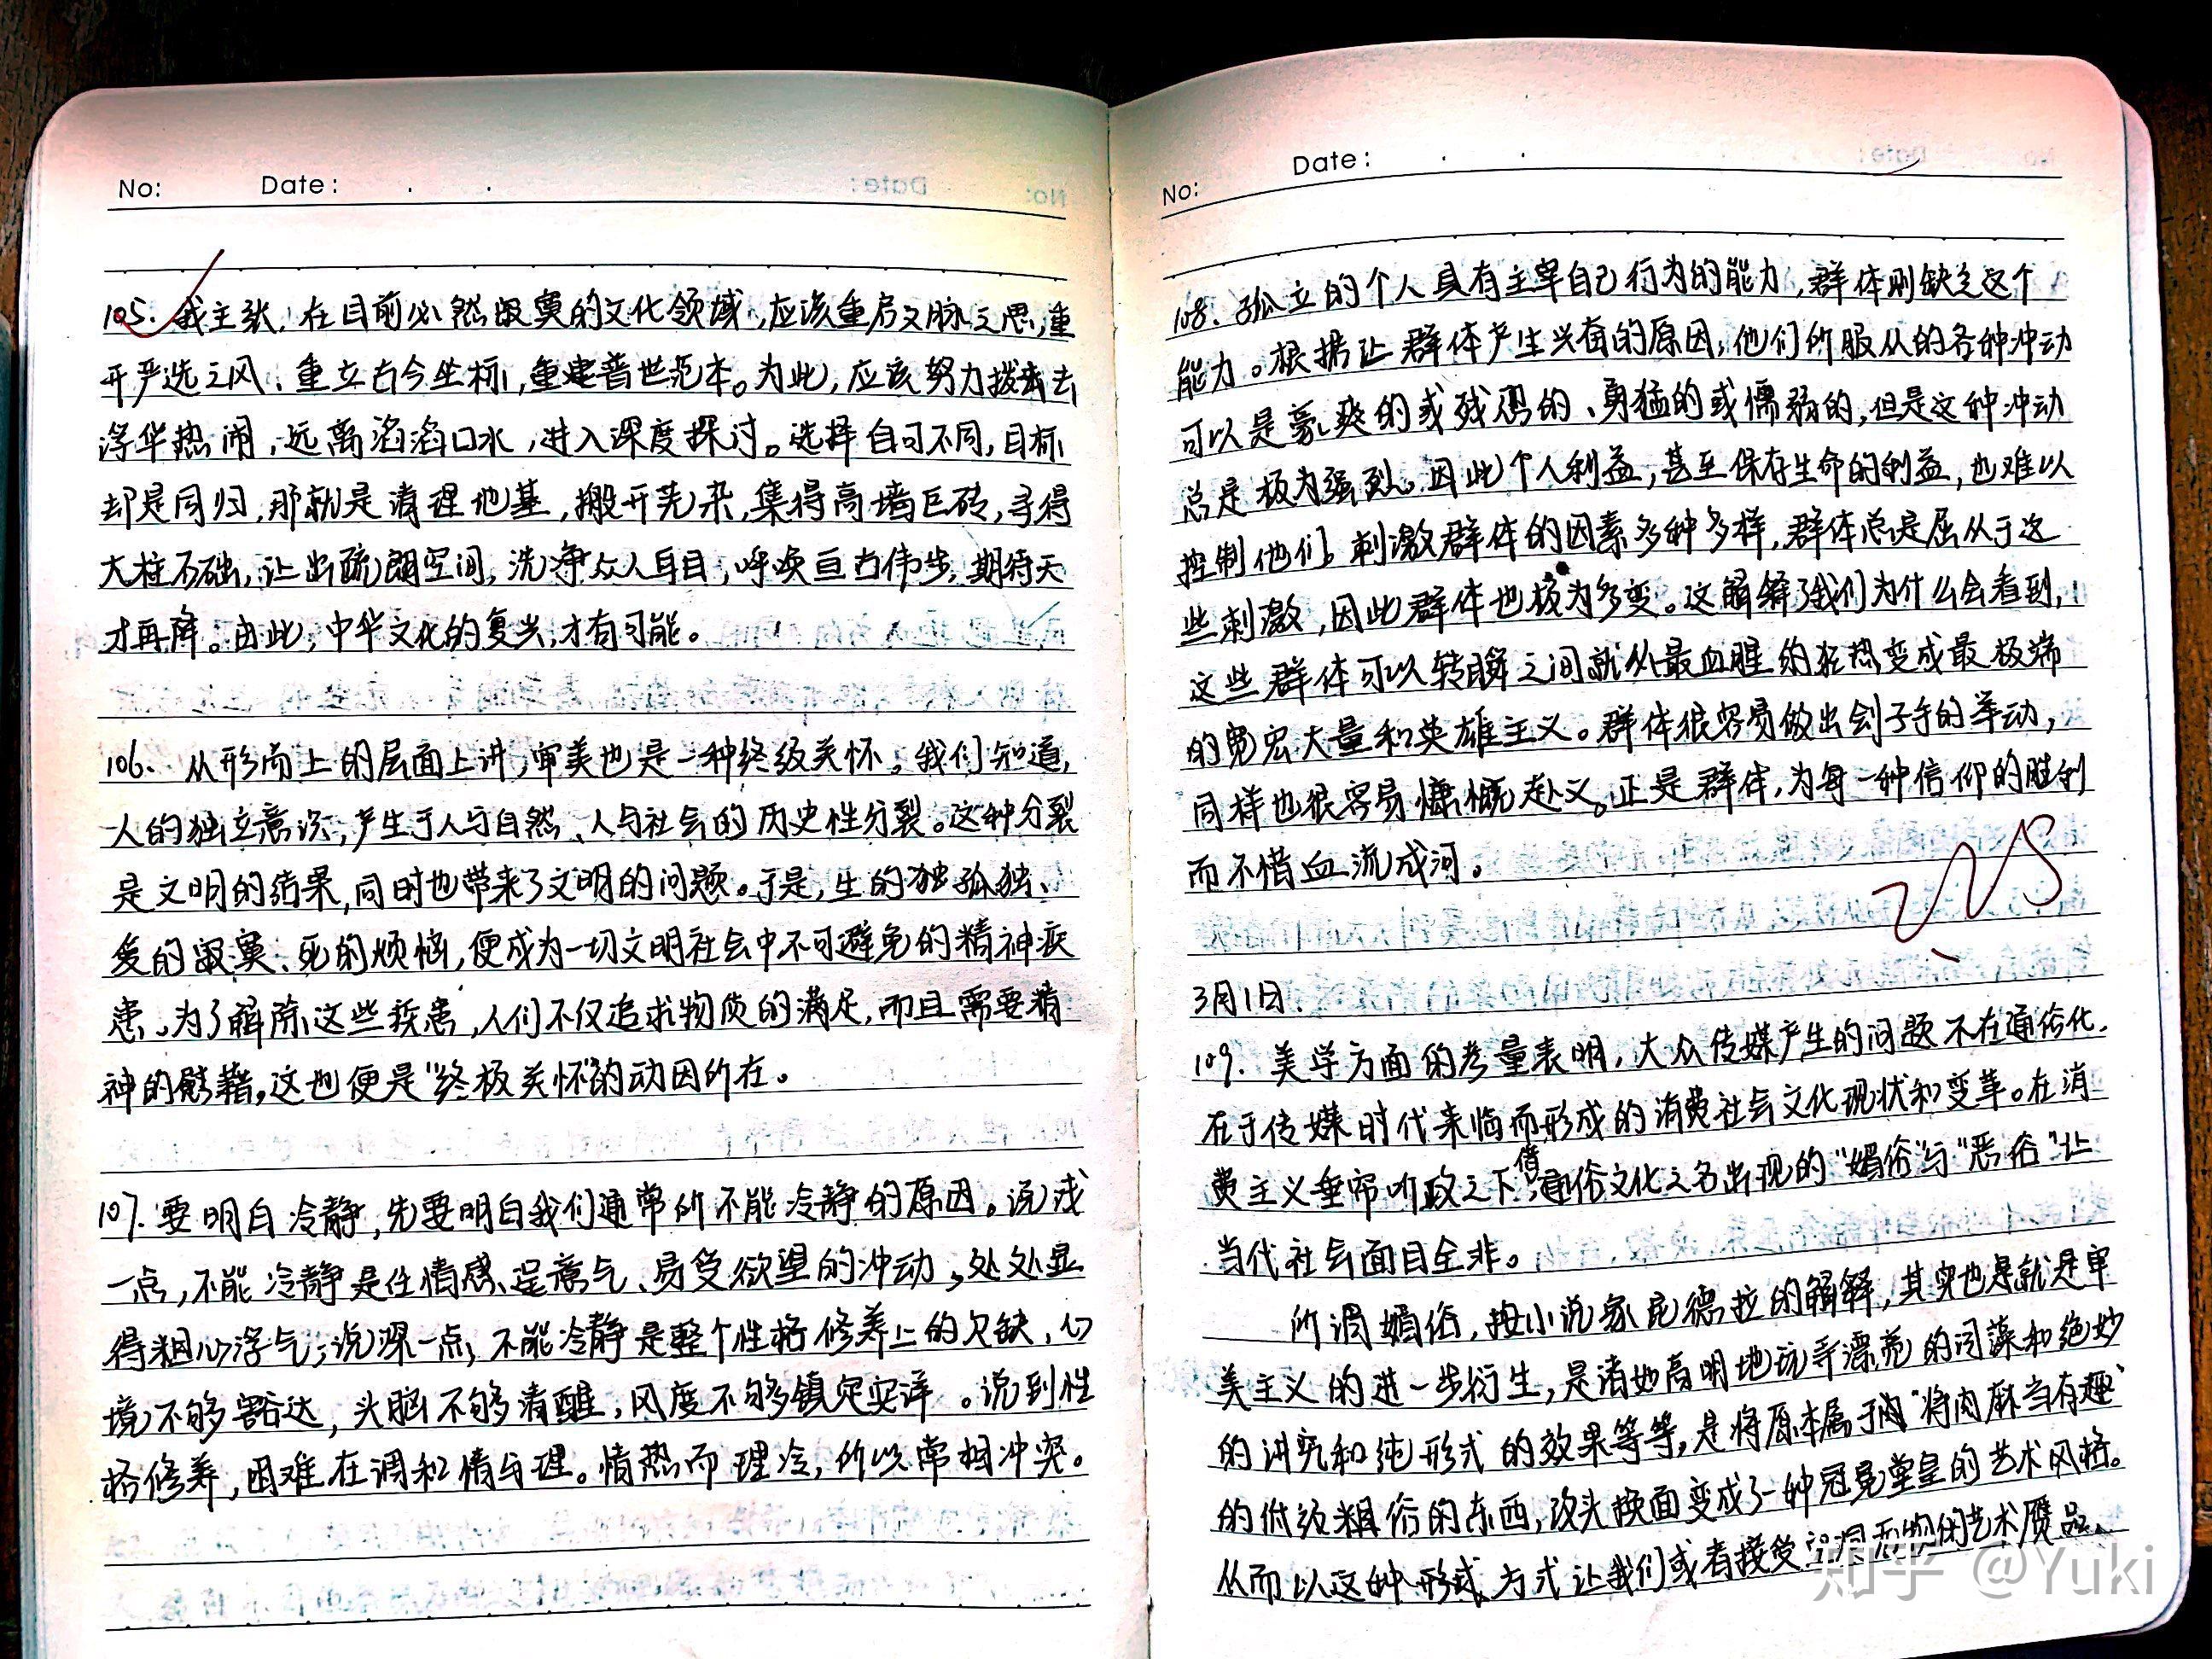 No:    Date:   .   .
105. 我主张,在目前必然寂寞的文化领域,应该重启文脉之思,重
开严选之风、重立古今坐标,重建普世范本。为此,应该努力拨去
浮华热闹,远离滔滔口水,进入深度探讨。选择自可不同,目标
却是同归,那就是清理地基,搬开芜杂,集得高墙巨砖,寻得
大柱石础,让出疏朗空间,洗净众人耳目,呼唤亘古伟步,期待天
才再降。由此,中华文化的复兴,才有可能。
106. 从形而上的层面上讲,审美也是一种终级关怀。我们知道,
人的独立意识,产生于人与自然、人与社会的历史性分裂。这种分裂
是文明的结果,同时也带来了文明的问题。于是,生的独孤独、
爱的寂寞、死的烦恼,便成为一切文明社会中不可避免的精神疾
患。为了解除这些疾患,人们不仅追求物质的满足,而且需要精
神的慰藉,这也便是"终极关怀"的动因所在。
107. 要明白冷静,先要明白我们通常所不能冷静的原因。说浅
一点,不能冷静是任情感、逞意气、易受欲望的冲动,处处显
得粗心浮气;说深一点,不能冷静是整个性格修养上的欠缺,心
境不够豁达,头脑不够清醒,风度不够镇定安详。说到性
格修养,困难在调和情与理。情热而理冷,所以常相冲突。
No:    Date:   .   .
108. 孤立的个人具有主宰自己行为的能力,群体则缺乏这个
能力。根据让群体产生兴奋的原因,他们所服从的各种冲动
可以是豪爽的或残忍的、勇猛的或懦弱的,但是这种冲动
总是极为强烈。因此个人利益,甚至保存生命的利益,也难以
控制他们。刺激群体的因素多种多样,群体总是屈从于这
些刺激,因此群体也极为多变。这解释了我们为什么会看到,
这些群体可以转瞬之间就从最血腥的狂热变成最极端
的宽宏大量和英雄主义。群体很容易做出刽子手的举动,
同样也很容易慷慨赴义。正是群体,为每一种信仰的胜利
而不惜血流成河。
3月1日.
109. 美学方面的考量表明,大众传媒产生的问题不在通俗化,
在于传媒时代来临而形成的消费社会文化现状和变革。在消
费主义垂帘听政之下,借通俗文化之名出现的"媚俗"与"恶俗"让
当代社会面目全非。
所谓媚俗,按小说家昆德拉的解释,其实也是就是审
美主义的进一步衍生,是诸如高明地玩弄漂亮的词藻和绝妙
的讲究和纯形式的效果等等,是将原本属于肉"将肉麻当有趣"
的低级粗俗的东西,改头换面变成了一种冠冕堂皇的艺术风格。
从而以这种形式、方式让我们或者接受空洞无物的艺术赝品、
知乎 @Yuki